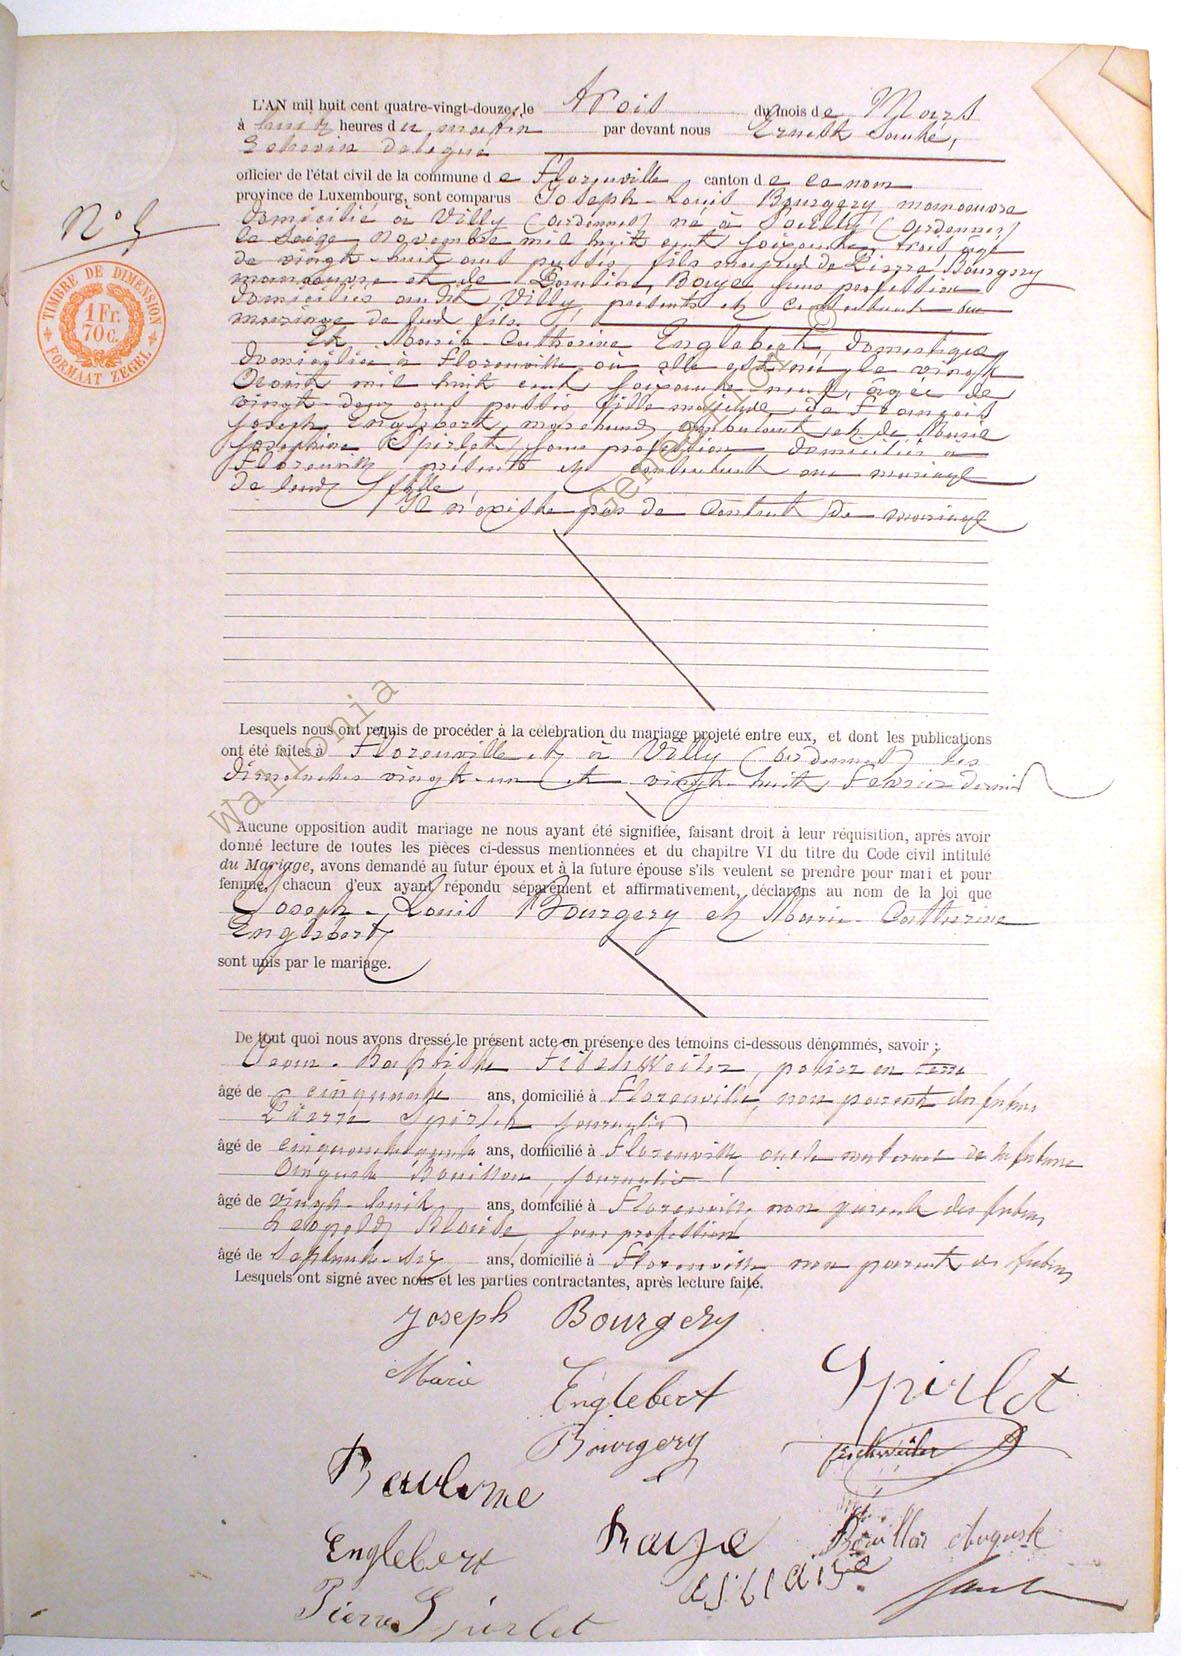 L'AN mil huit cent quatre-vingt-douze, le trois du mois de Mars
à huit heures du matin par devant nous Ernest Sauté,
Echevin délégué
officier de l'état civil de la commune de Florenville, canton de ce nom
province de Luxembourg, sont comparus Joseph-Louis Bourgery, manoeuvre
domicilié à Villy (Ardennes) né à (Ardennes)
le Seize Novembre mil huit cent soixante trois âgé
de vingt-huit ans passés, fils majeur de Pierre Bourgery
manoeuvre et de Pauline Raye sans profession
domiciliés audit Villy, présents et consentant au
mariage de leur fils.
Et Marie-Catherine Englebert, domestique,
domiciliée à Florenville où elle est née, le vingt
Août mil huit cent soixante-neuf, âgée de
vingt-deux ans passés fille majeure de François
Joseph Englebert, marchand ambulant et de Marie
Joséphine Spirlet, sans profession, domiciliés à
Florenville présents et consentant au mariage
de leur fille
Il n'existe pas de Contrat de mariage
N° 5
TIMBRE DE DIMENSION
1 Fr.
70 c.
FORMAAT ZEGEL
Lesquels nous ont requis de procéder à la célébration du mariage projeté entre eux, et dont les publications
ont été faites à Florenville et à Villy (Ardennes) les
dimanches vingt-un et vingt-huit Février dernier
Aucune opposition audit mariage ne nous ayant été signifiée, faisant droit à leur réquisition, après avoir
donné lecture de toutes les pièces ci-dessus mentionnées et du chapitre VI du titre du Code civil intitulé
du Mariage, avons demandé au futur époux et à la future épouse s'ils veulent se prendre pour mari et pour
femme, chacun d'eux ayant répondu séparément et affirmativement, déclarons au nom de la loi que
Joseph-Louis Bourgery et Marie-Catherine
Englebert
sont unis par le mariage.
De tout quoi nous avons dressé le présent acte en présence des témoins ci-dessous dénommés, savoir :
Jean-Baptiste Feischweiler, potier en terre
âgé de cinquante ans, domicilié à Florenville, non parent des futurs
Pierre Spirlet journalier
âgé de ans, domicilié à Florenville, oncle maternel de la future
Auguste Bouillon, journalier
âgé de vingt-huit ans, domicilié à Florenville, non parent des futurs
Léopold Blaise, sans profession
âgé de septante-six ans, domicilié à Florenville non parent des futurs
Lesquels ont signé avec nous et les parties contractantes, après lecture faite.
Joseph Bourgery
Marie Englebert Spirlet
Bourgery feischweiler
Pauline
Englebert Raye Bouillon Auguste
Blaise
Pierre Spirlet Sauté
Wallonia Genealogy ©